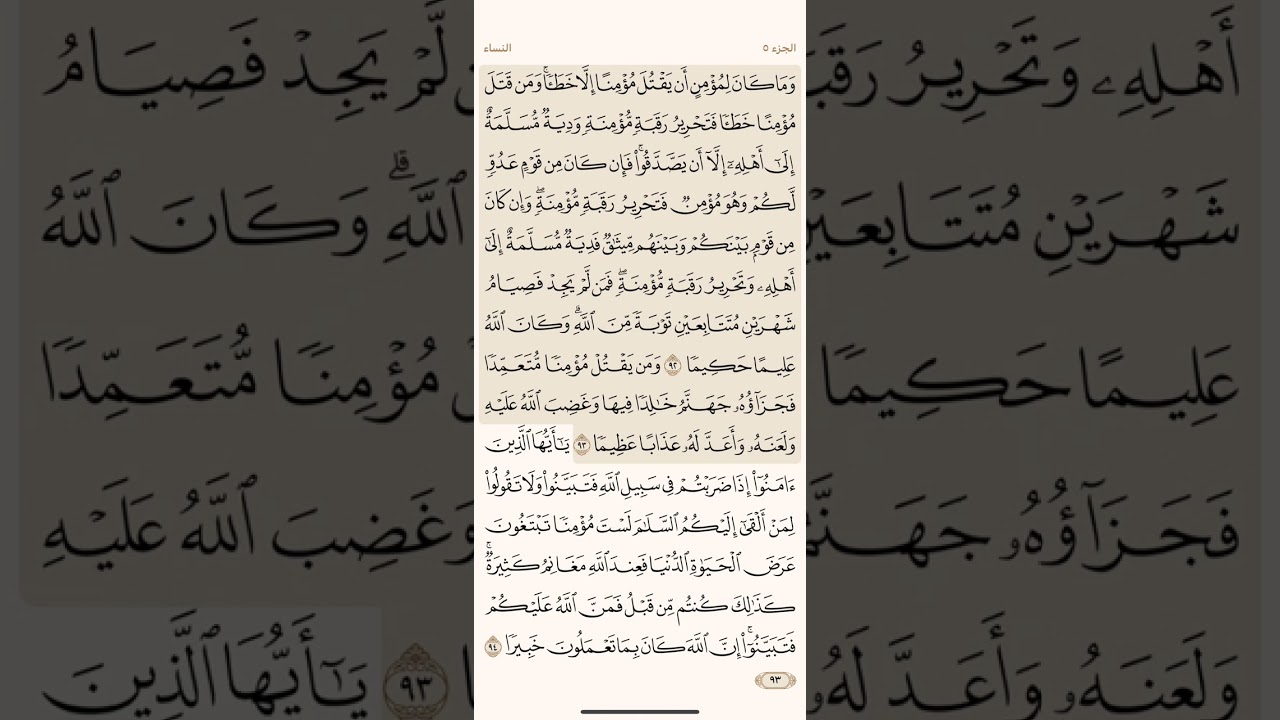 الجزء ٥
النساء
وَمَا كَانَ لِمُؤْمِنٍ أَن يَقْتُلَ مُؤْمِنًا إِلَّا خَطَـًٔا ۚ وَمَن قَتَلَ
مُؤْمِنًا خَطَـًٔا فَتَحْرِيرُ رَقَبَةٍ مُّؤْمِنَةٍ وَدِيَةٌ مُّسَلَّمَةٌ
إِلَىٰٓ أَهْلِهِۦٓ إِلَّآ أَن يَصَّدَّقُوا۟ ۚ فَإِن كَانَ مِن قَوْمٍ عَدُوٍّ
لَّكُمْ وَهُوَ مُؤْمِنٌ فَتَحْرِيرُ رَقَبَةٍ مُّؤْمِنَةٍ ۖ وَإِن كَانَ
مِن قَوْمٍۭ بَيْنَكُمْ وَبَيْنَهُم مِّيثَـٰقٌ فَدِيَةٌ مُّسَلَّمَةٌ إِلَىٰٓ
أَهْلِهِۦ وَتَحْرِيرُ رَقَبَةٍ مُّؤْمِنَةٍ ۖ فَمَن لَّمْ يَجِدْ فَصِيَامُ
شَهْرَيْنِ مُتَتَابِعَيْنِ تَوْبَةً مِّنَ ٱللَّهِ ۗ وَكَانَ ٱللَّهُ
عَلِيمًا حَكِيمًا ٩٢ وَمَن يَقْتُلْ مُؤْمِنًا مُّتَعَمِّدًا
فَجَزَآؤُهُۥ جَهَنَّمُ خَـٰلِدًا فِيهَا وَغَضِبَ ٱللَّهُ عَلَيْهِ
وَلَعَنَهُۥ وَأَعَدَّ لَهُۥ عَذَابًا عَظِيمًا ٩٣ يَـٰٓأَيُّهَا ٱلَّذِينَ
ءَامَنُوٓا۟ إِذَا ضَرَبْتُمْ فِى سَبِيلِ ٱللَّهِ فَتَبَيَّنُوا۟ وَلَا تَقُولُوا۟
لِمَنْ أَلْقَىٰٓ إِلَيْكُمُ ٱلسَّلَـٰمَ لَسْتَ مُؤْمِنًا تَبْتَغُونَ
عَرَضَ ٱلْحَيَوٰةِ ٱلدُّنْيَا فَعِندَ ٱللَّهِ مَغَانِمُ كَثِيرَةٌ ۚ
كَذَٰلِكَ كُنتُم مِّن قَبْلُ فَمَنَّ ٱللَّهُ عَلَيْكُمْ
فَتَبَيَّنُوٓا۟ ۚ إِنَّ ٱللَّهَ كَانَ بِمَا تَعْمَلُونَ خَبِيرًا ٩٤
٩٣